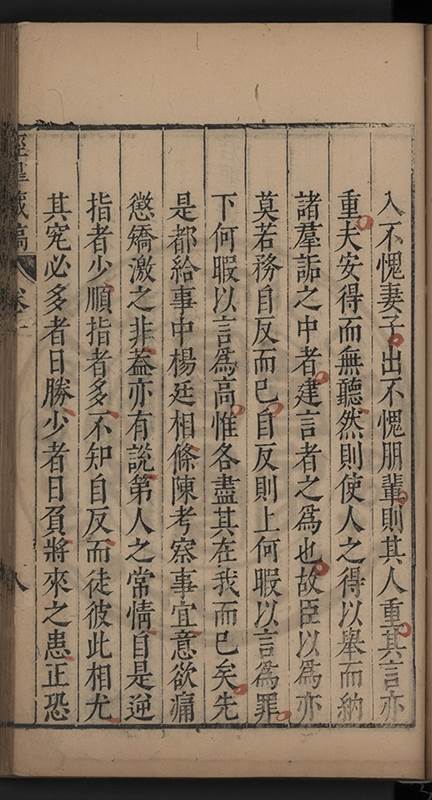 入不愧妻子出不愧朋輩則其人重其言亦
重夫安得而無聽然則使人之得以舉而納
諸羣詬之中者建言者之爲也故臣以爲亦
莫若務自反而已自反則上何暇以言爲罪
下何暇以言爲高惟各盡其在我而已矣先
是都給事中楊廷相條陳考察事宜意欲痛
懲矯激之非葢亦有說第人之常情自是逆
指者少順指者多不知自反而徒彼此相尤
其究必多者日勝少者日負將來之患正恐
涇臯藏稿
卷一
八